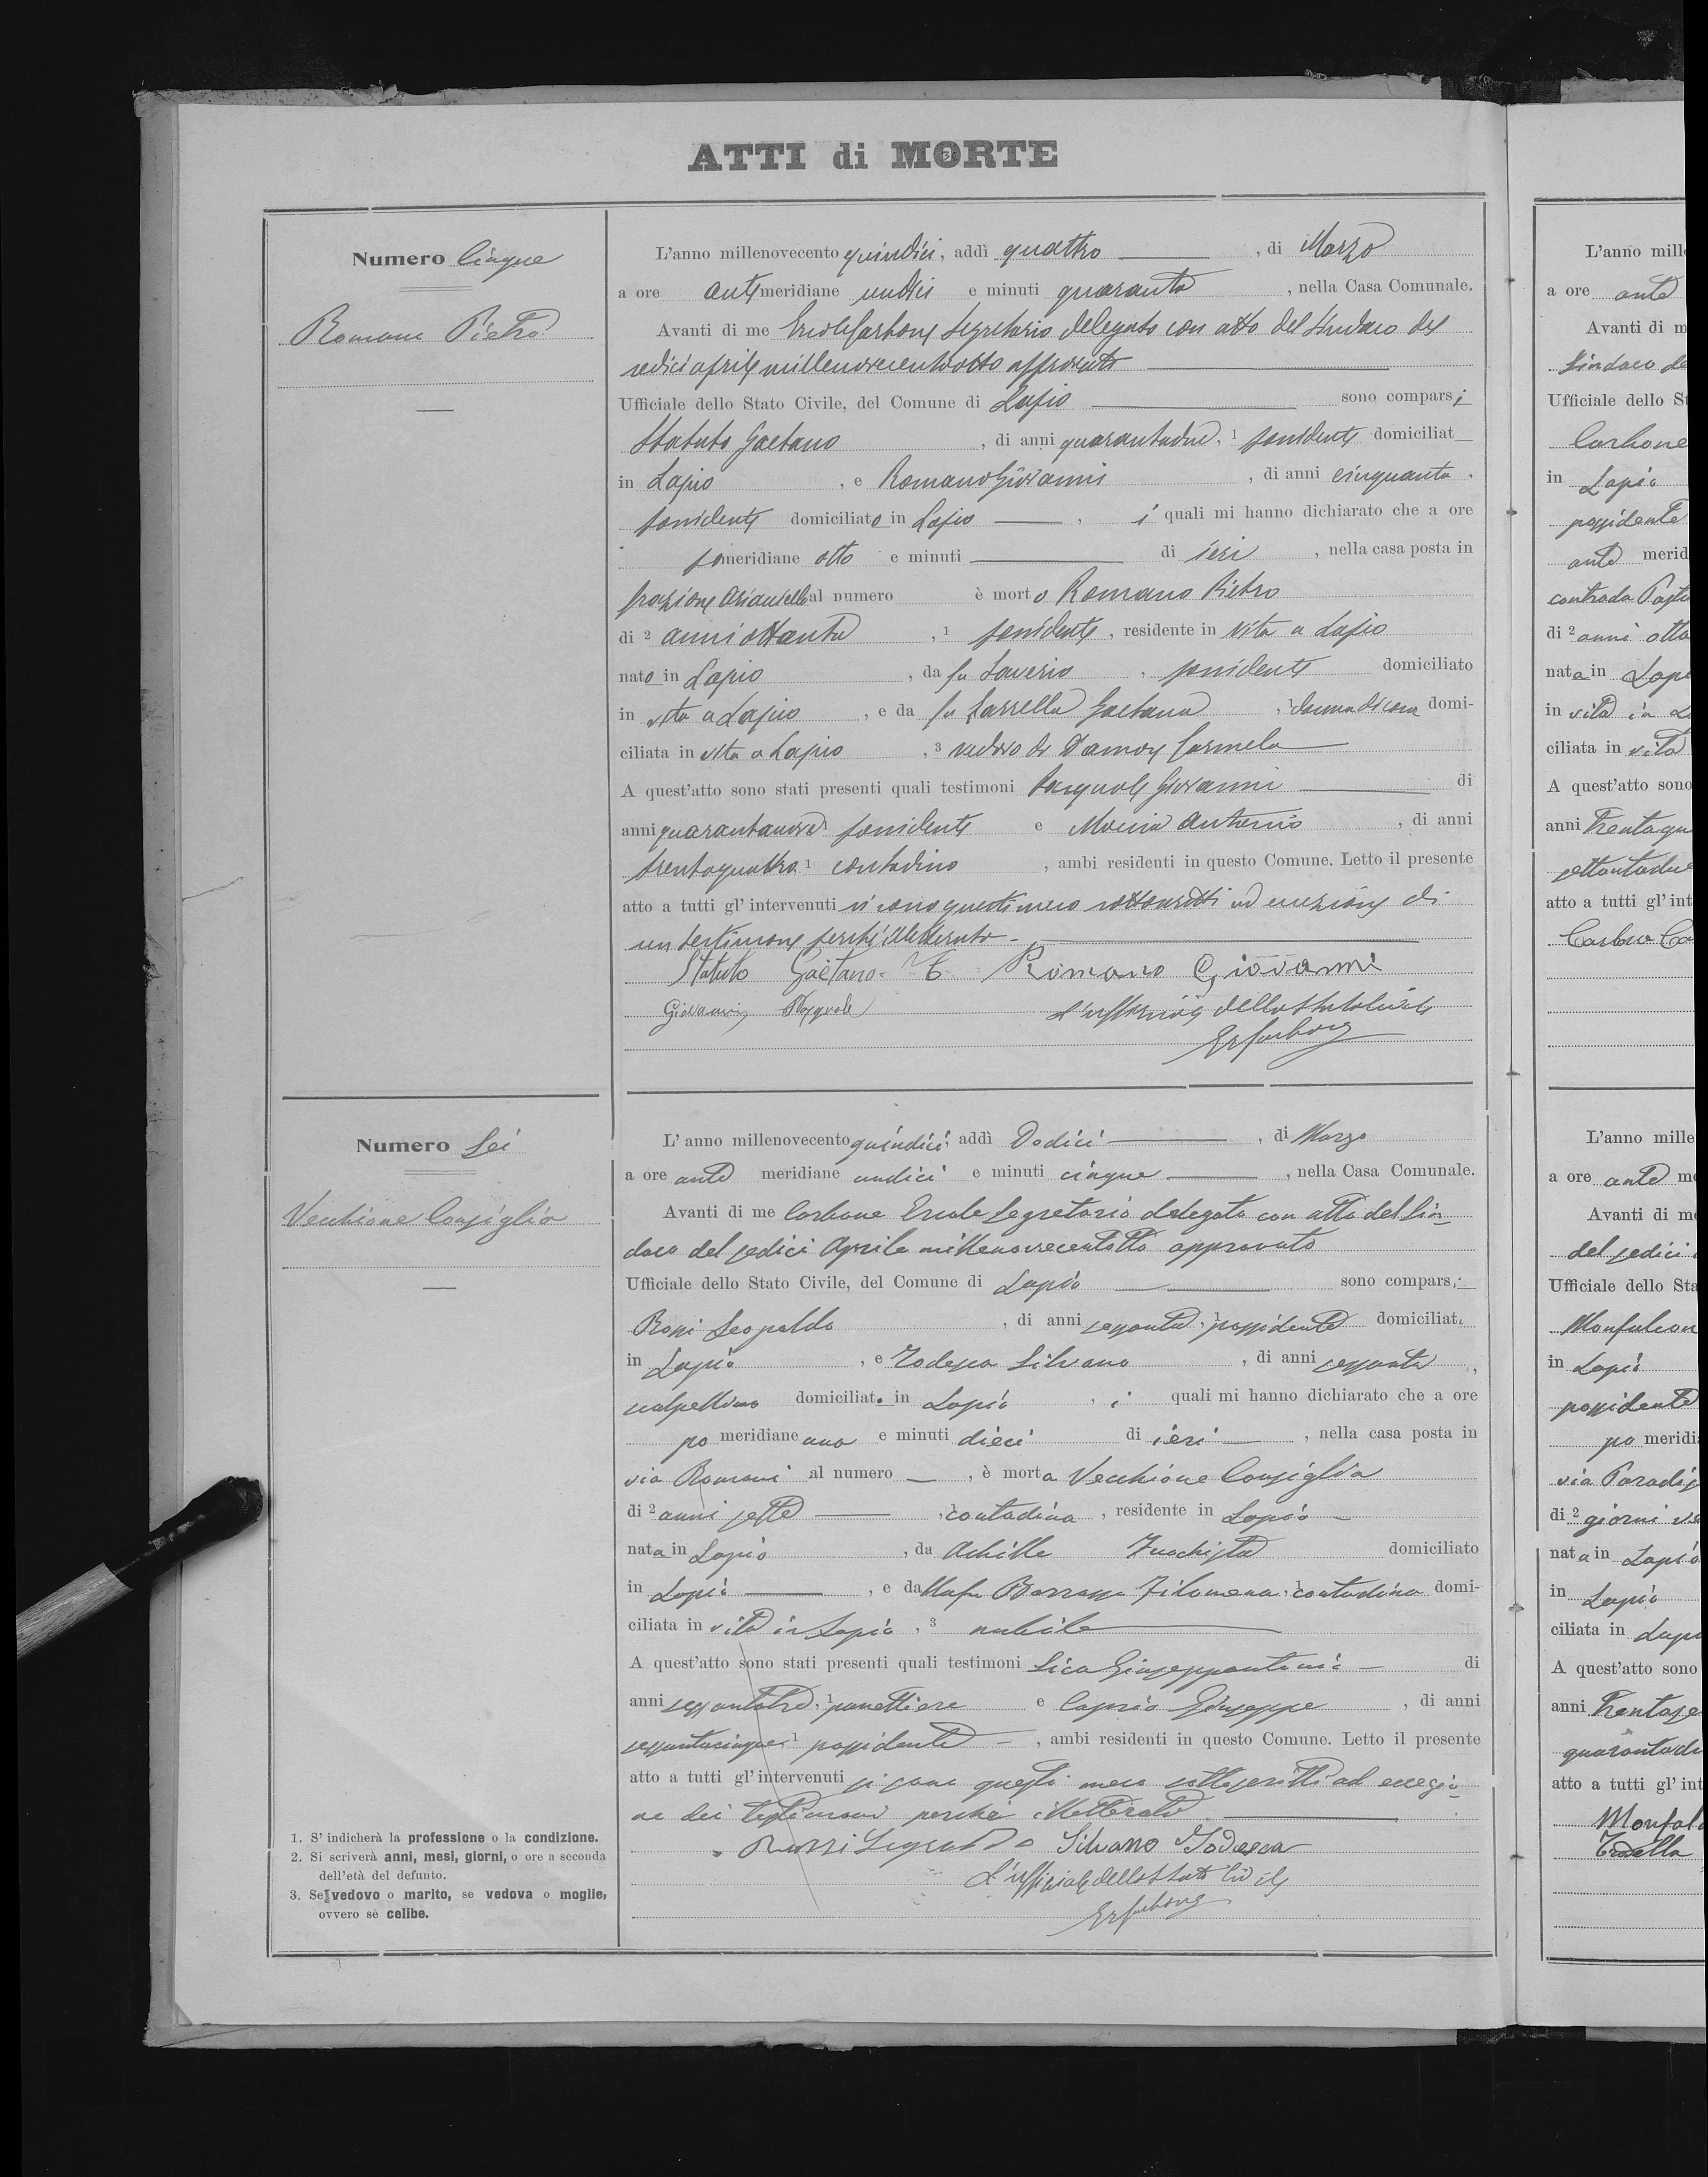 ATTI di MORTE
Numero Cinque
Romano Pietro
L'anno millenovecento quindici, addì quattro, di Marzo
a ore antemeridiane undici e minuti quaranta, nella Casa Comunale.
Avanti di me Ercole Carbone Segretario delegato con atto del Sindaco del
sedici aprile millenovecentootto approvato
Ufficiale dello Stato Civile, del Comune di Lapio sono comparsi
Statuto Gaetano, di anni quarantadue, 1 possidente domiciliat
in Lapio, e Romano Giovanni, di anni cinquanta.
possidente domiciliato in Lapio, i quali mi hanno dichiarato che a ore
pomeridiane otto e minuti di ieri, nella casa posta in
frazione Arianiello al numero è morto Romano Pietro
di 2 anni ottanta, 1 possidente, residente in vita a Lapio
nato in Lapio, da fu Saverio, possidente domiciliato
in vita a Lapio, e da fu Carrella Gaetana, 1 donna di casa domi-
ciliata in vita a Lapio, 3 vedovo di Damone Carmela
A quest'atto sono stati presenti quali testimoni Pasquale Giovanni di
anni quarantanove possidente e Antonio, di anni
trentaquattro 1 contadino, ambi residenti in questo Comune. Letto il presente
atto a tutti gl'intervenuti si sono questi meco sottoscritti ad eccezione di
un testimone perché illetterato
Statuto Gaetano. Romano Giovanni
Giovanni Pasquale L'ufficiale dello Stato Civile
Er Carbone
Numero Sei
Vecchione Consiglia
L'anno millenovecento quindici, addì Dodici, di Marzo
a ore ante meridiane undici e minuti cinque, nella Casa Comunale.
Avanti di me Carbone Ercole Segretario delegato con atto del Sin-
daco del sedici Aprile millenovecentotto approvato
Ufficiale dello Stato Civile, del Comune di Lapio sono comparsi
Rossi Leopoldo, di anni sessanta, 1 possidente domiciliat
in Lapio, e Todesca Silvano, di anni sessanta,
scalpellino domiciliato in Lapio, i quali mi hanno dichiarato che a ore
po meridiane una e minuti dieci di ieri, nella casa posta in
via Romani al numero, è morta Vecchione Consiglia
di 2 anni sette, 1 contadina, residente in Lapio
nata in Lapio, da Achille Fuochista domiciliato
in Lapio, e dalla fu Filomena, 1 contadina domi-
ciliata in vita in Lapio, 3 nubile
A quest'atto sono stati presenti quali testimoni Sica Giuseppantonio di
anni sessantatre, 1 panettiere e Caprio Giuseppe, di anni
sessantacinque 1 possidente, ambi residenti in questo Comune. Letto il presente
atto a tutti gl'intervenuti si sono questi meco sottoscritti ad eccezio-
ne dei testimoni perché illetterati
Rossi Leopoldo Silvano Todesca
L'ufficiale dello Stato Civile
Er Carbone
1. S'indicherà la professione o la condizione.
2. Si scriverà anni, mesi, giorni, o ore a seconda
dell'età del defunto.
3. Se vedovo o marito, se vedova o moglie,
ovvero sè celibe.
L'anno mill
a ore ante
Avanti di m
Sindaco de
Ufficiale dello St
Carbone
in Lapio
possidente
ante merid
contrada
di 2 anni otta
nata in Lapi
in vita in La
ciliata in vita
A quest'atto sono
anni Trentaqu
settantadue
atto a tutti gl'int
L'anno mille
a ore ante me
Avanti di me
del sedici
Ufficiale dello Sta
in Lapio
possidente
po meridi
via Paradis
di 2 giorni
nata in Lapio
in Lapio
ciliata in Lapi
A quest'atto sono
anni Trentase
quarantadu
atto a tutti gl'int